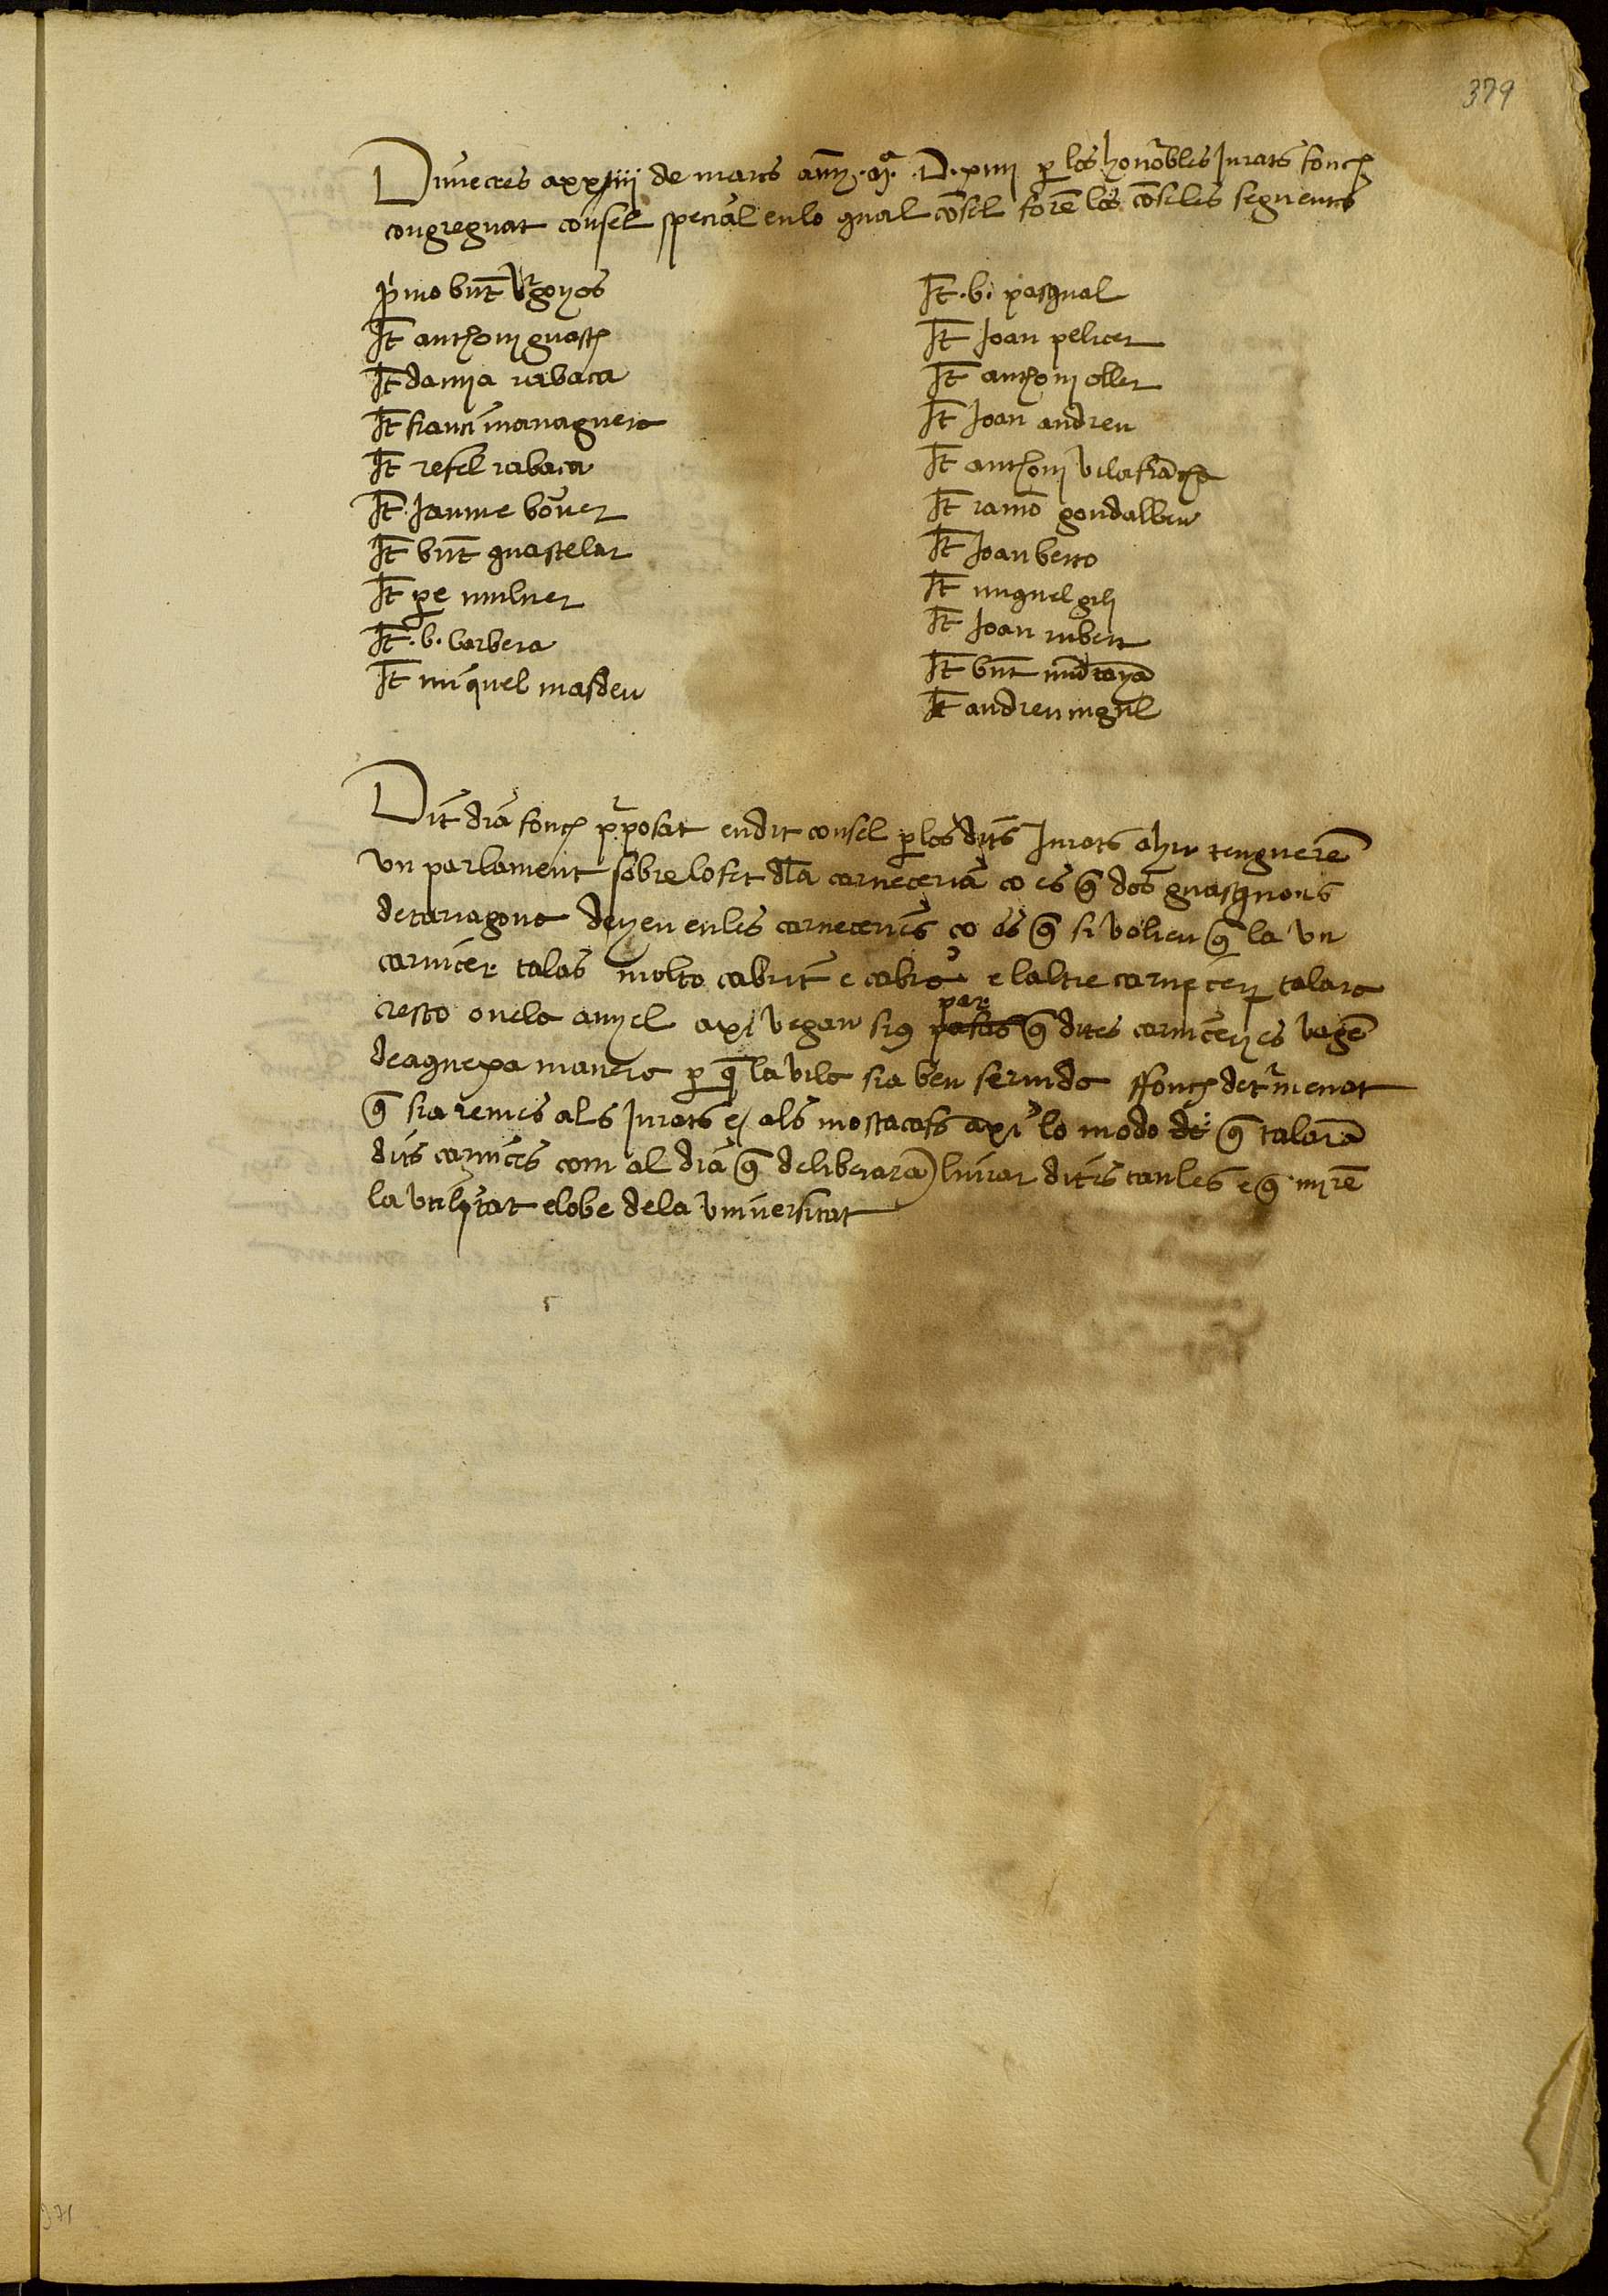 379
Dimecres a xxiiii de mars anny .M.a .D.xiiii per los honorables Jurats fonch
congreguat consel special en lo qual consel foren los conseles seguents
primo bnt Vrgoyos
It anthoni guasch
It damia rabaca
It franci managuera
It refel rabaca
It Jaume bover
It bnt guastelar
It pere muluer
It .b. barbera
It miquel masdeu
It .b. pasqual
It Joan pelicer
It anthoni oller
It Joan andreu
It anthoni vilafrancha
It ramo gondalbeu
It Joan berto
It miquel gili
It Joan rubert
It bnt
It andreu
Dit dia fonch proposat en dit consel per los dits Jurats ahir tengueren
vn parlament sobre lo fet dla carneceria co es que dos guasquons
de tarragona deyen en les carneceries co es que si volien que la vn
carnicer talas molto cabrit e cabro e laltre carnecer talara
cresto ovela anyel axi vegau sius par que dites carniceryes vagen
de aquexa manera per que la vila sia ben servida ffonch determenat
que sia remes als Jurats e als mostacafs axi lo modo de que talaran
dits carnices com al dia que deliberaran liurar dites taules e que miren
la vtilitat e lobe de la vniversitat
371